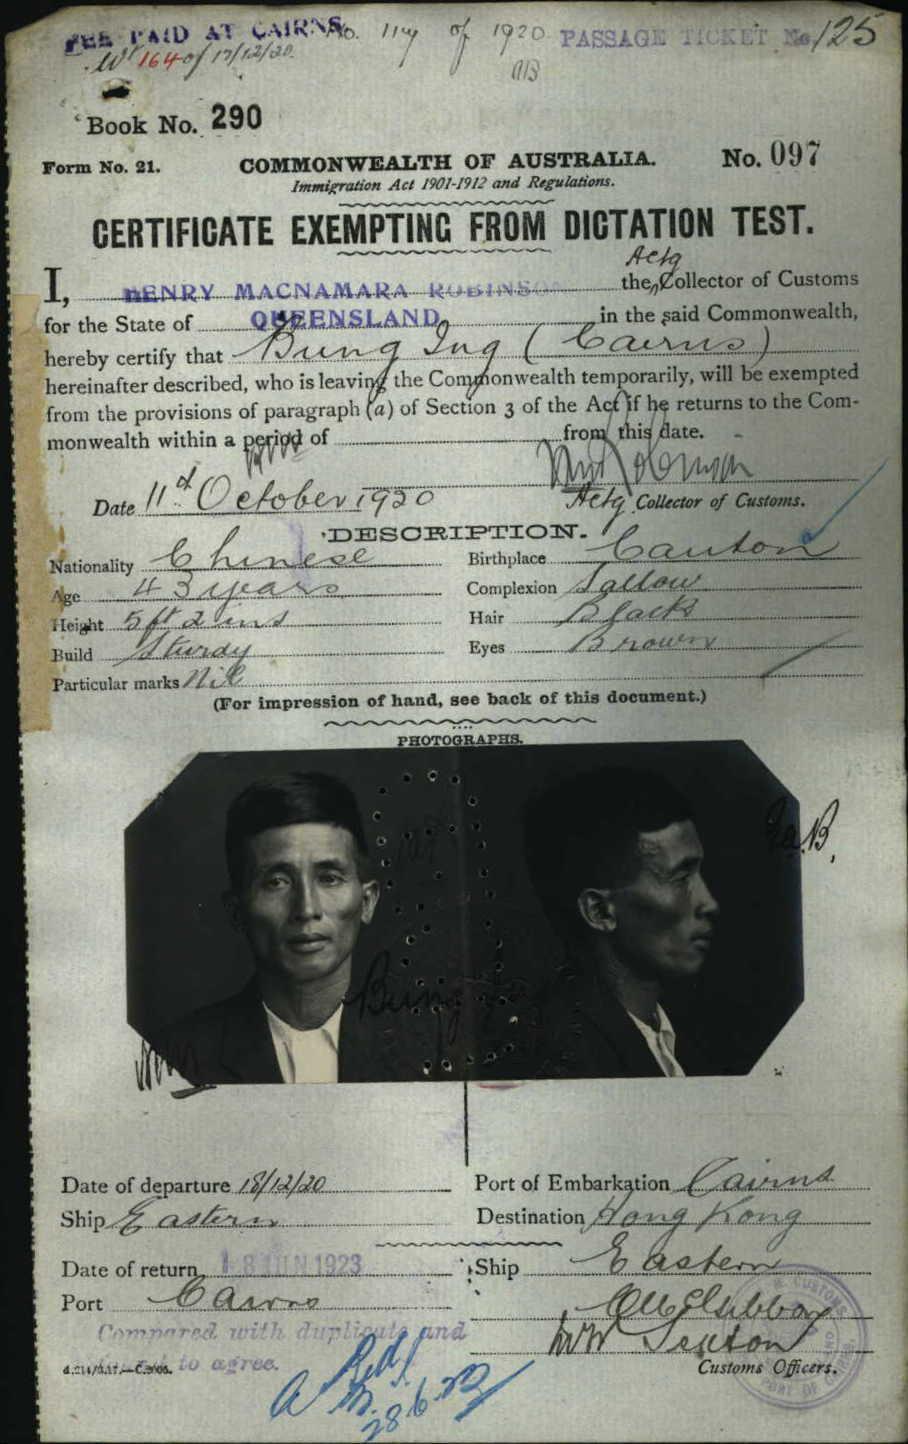 FEE PAID AT CAIRNS. No. 117 of 1920 PASSAGE TICKET No. 125
164 of 17/12/20.
Book No. 290
Form No. 21. COMMONWEALTH OF AUSTRALIA. No. 097
Immigration Act 1901-1912 and Regulations.
CERTIFICATE EXEMPTING FROM DICTATION TEST.
Actg
I, HENRY MACNAMARA ROBINSON the Collector of Customs
for the State of QUEENSLAND in the said Commonwealth,
hereby certify that Bung Ing (Cairns)
hereinafter described, who is leaving the Commonwealth temporarily, will be exempted
from the provisions of paragraph (a) of Section 3 of the Act if he returns to the Com-
monwealth within a period of from this date.
Date 11th October 1920
Actg Collector of Customs.
DESCRIPTION.
Nationality Chinese Birthplace Canton
Age 43 years Complexion Sallow
Height 5 ft 2 ins Hair Black
Build Sturdy Eyes Brown
Particular marks Nil
(For impression of hand, see back of this document.)
PHOTOGRAPHS.
Bung
Date of departure 18/12/20 Port of Embarkation Cairns
Ship Eastern Destination Hong Kong
Date of return 18 JUN 1923 Ship Eastern
Port Cairns
Compared with duplicate and
to agree.
Sexton
Customs Officers.
28.6.23